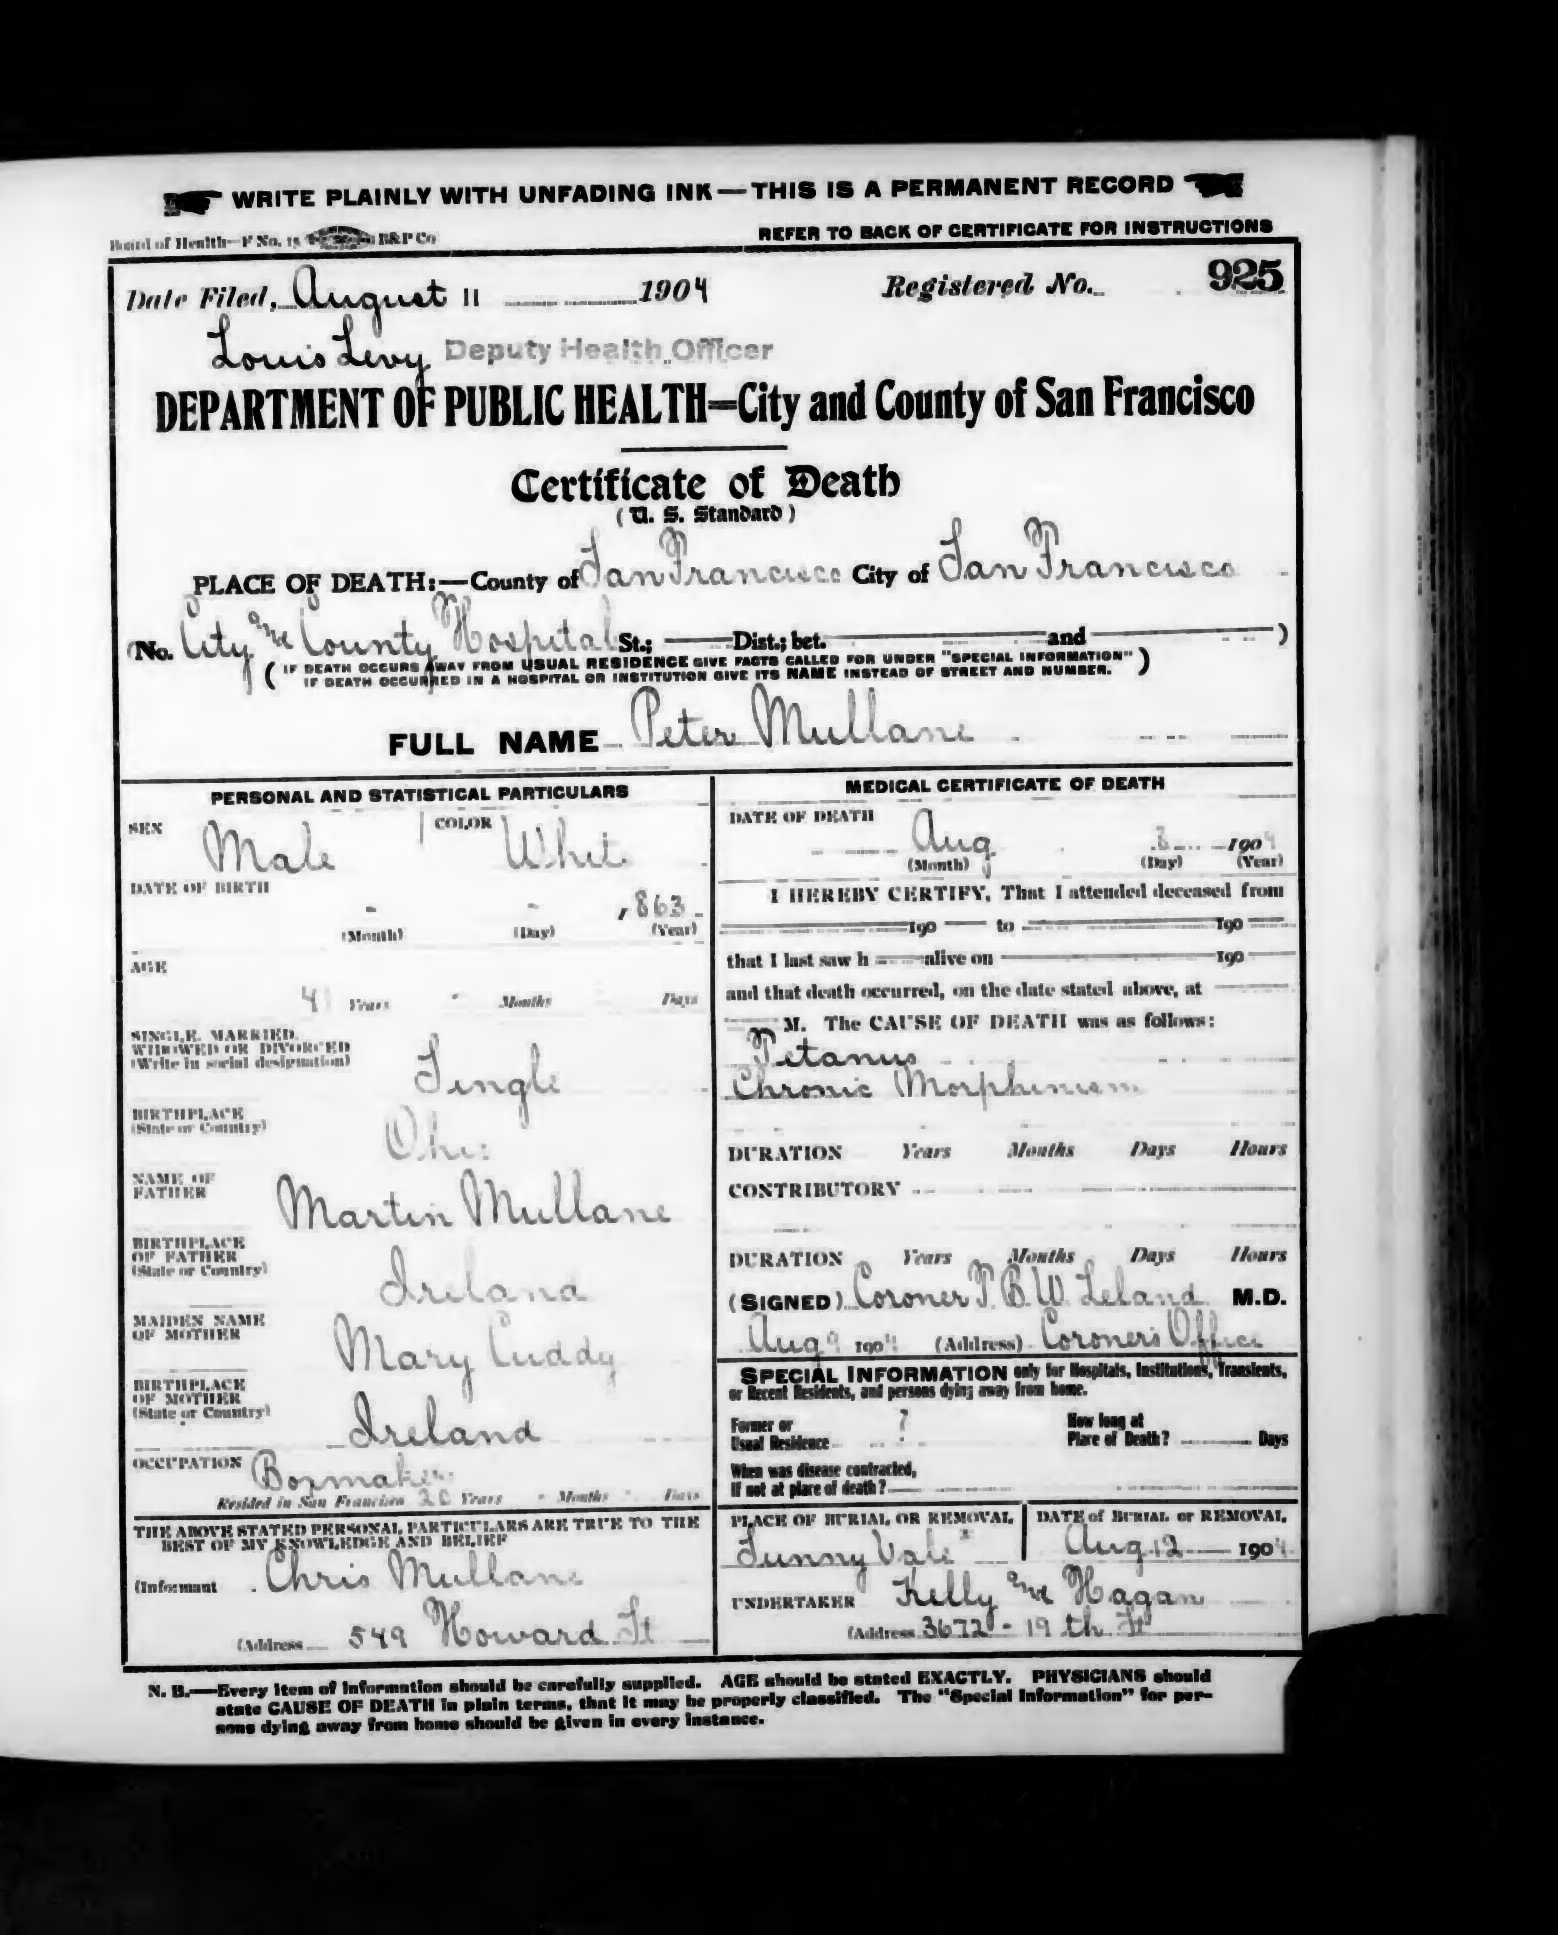 WRITE PLAINLY WITH UNFADING INK—THIS IS A PERMANENT RECORD
Board of Health—F No. 15 B&P Co
REFER TO BACK OF CERTIFICATE FOR INSTRUCTIONS
Date Filed, August 11 1904 Registered No. 925
Louis Levy Deputy Health Officer
DEPARTMENT OF PUBLIC HEALTH=City and County of San Francisco
Certificate of Death
(U. S. Standard)
PLACE OF DEATH:—County of San Francisco City of San Francisco
(No. City and County Hospital St.; Dist.; bet. and )
(IF DEATH OCCURS AWAY FROM USUAL RESIDENCE GIVE FACTS CALLED FOR UNDER "SPECIAL INFORMATION"
IF DEATH OCCURRED IN A HOSPITAL OR INSTITUTION GIVE ITS NAME INSTEAD OF STREET AND NUMBER.)
FULL NAME Peter Mullane
PERSONAL AND STATISTICAL PARTICULARS
SEX Male COLOR White
DATE OF BIRTH
- - , 863
(Month) (Day) (Year)
AGE
41 Years - Months Days
SINGLE, MARRIED,
WIDOWED OR DIVORCED
(Write in social designation) Single
BIRTHPLACE
(State or Country) Ohio
NAME OF
FATHER Martin Mullane
BIRTHPLACE
OF FATHER
(State or Country) Ireland
MAIDEN NAME
OF MOTHER Mary Cuddy
BIRTHPLACE
OF MOTHER
(State or Country) Ireland
OCCUPATION Boxmaker
Resided in San Francisco 20 Years - Months - Days
THE ABOVE STATED PERSONAL PARTICULARS ARE TRUE TO THE
BEST OF MY KNOWLEDGE AND BELIEF
(Informant Chris Mullane
(Address 549 Howard St
MEDICAL CERTIFICATE OF DEATH
DATE OF DEATH
Aug 8 1904
(Month) (Day) (Year)
I HEREBY CERTIFY, That I attended deceased from
190 to 190
that I last saw h alive on 190
and that death occurred, on the date stated above, at
M. The CAUSE OF DEATH was as follows:
Tetanus
Chronic Morphinism
DURATION Years Months Days Hours
CONTRIBUTORY
DURATION Years Months Days Hours
(SIGNED) Coroner T. B. W. Leland M.D.
Aug 9 1904 (Address) Coroner's Office
SPECIAL INFORMATION only for Hospitals, Institutions, Transients,
or Recent Residents, and persons dying away from home.
Former or
Usual Residence ?
How long at
Place of Death? Days
When was disease contracted,
If not at place of death?
PLACE OF BURIAL OR REMOVAL
Sunny Vale
DATE of BURIAL or REMOVAL
Aug 12 1904
UNDERTAKER Kelly and Hagan
(Address 3672 - 19th St
N. B.—Every item of information should be carefully supplied. AGE should be stated EXACTLY. PHYSICIANS should
state CAUSE OF DEATH in plain terms, that it may be properly classified. The "Special Information" for per-
sons dying away from home should be given in every instance.